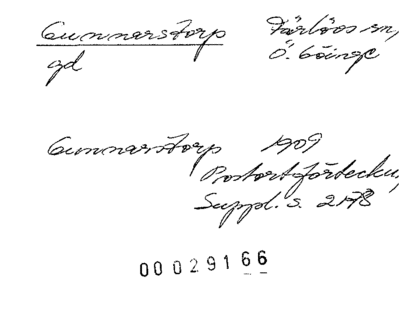 Gunnarstorp Färlövs sn,
gd Ö. Göinge
Gunnarstorp 1909
Postortsförteckn,
Suppl. s. 2178
00029166